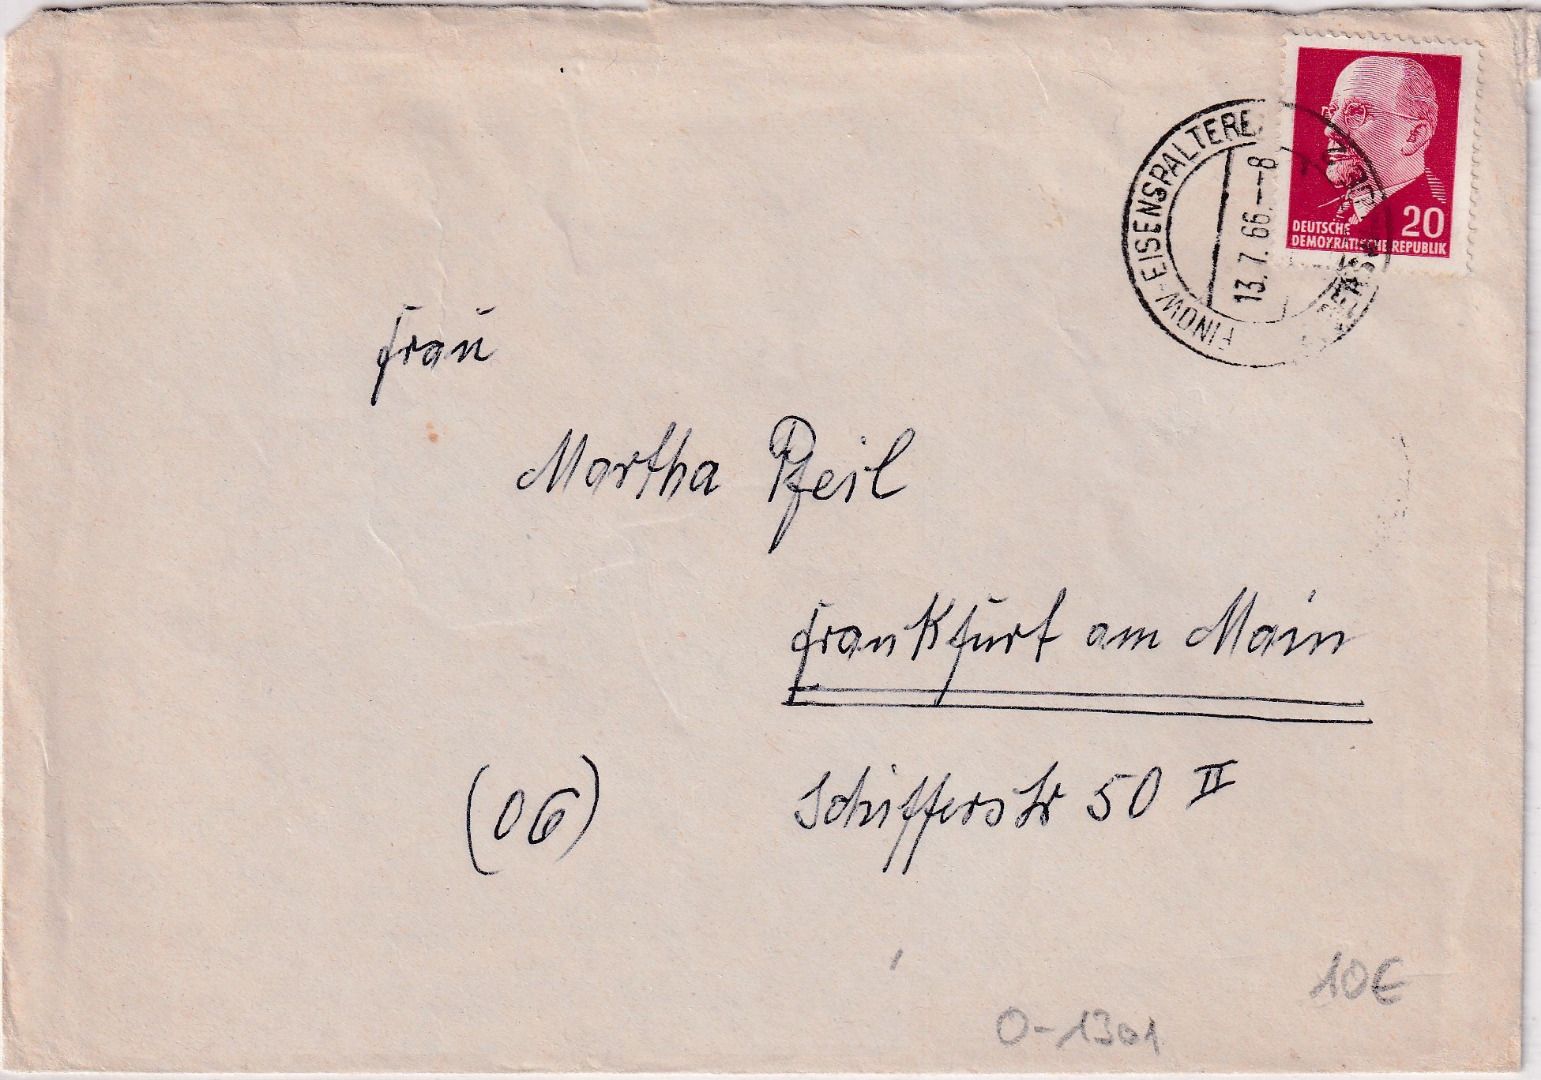 20
DEUTSCHE
DEMOKRATISCHE REPUBLIK
FINOW-EISENSPALTEREI
13.7.66.--8
Frau
Martha Pfeil
Frankfurt am Main
(06)
Schifferstr 50 II
10€
O-1301